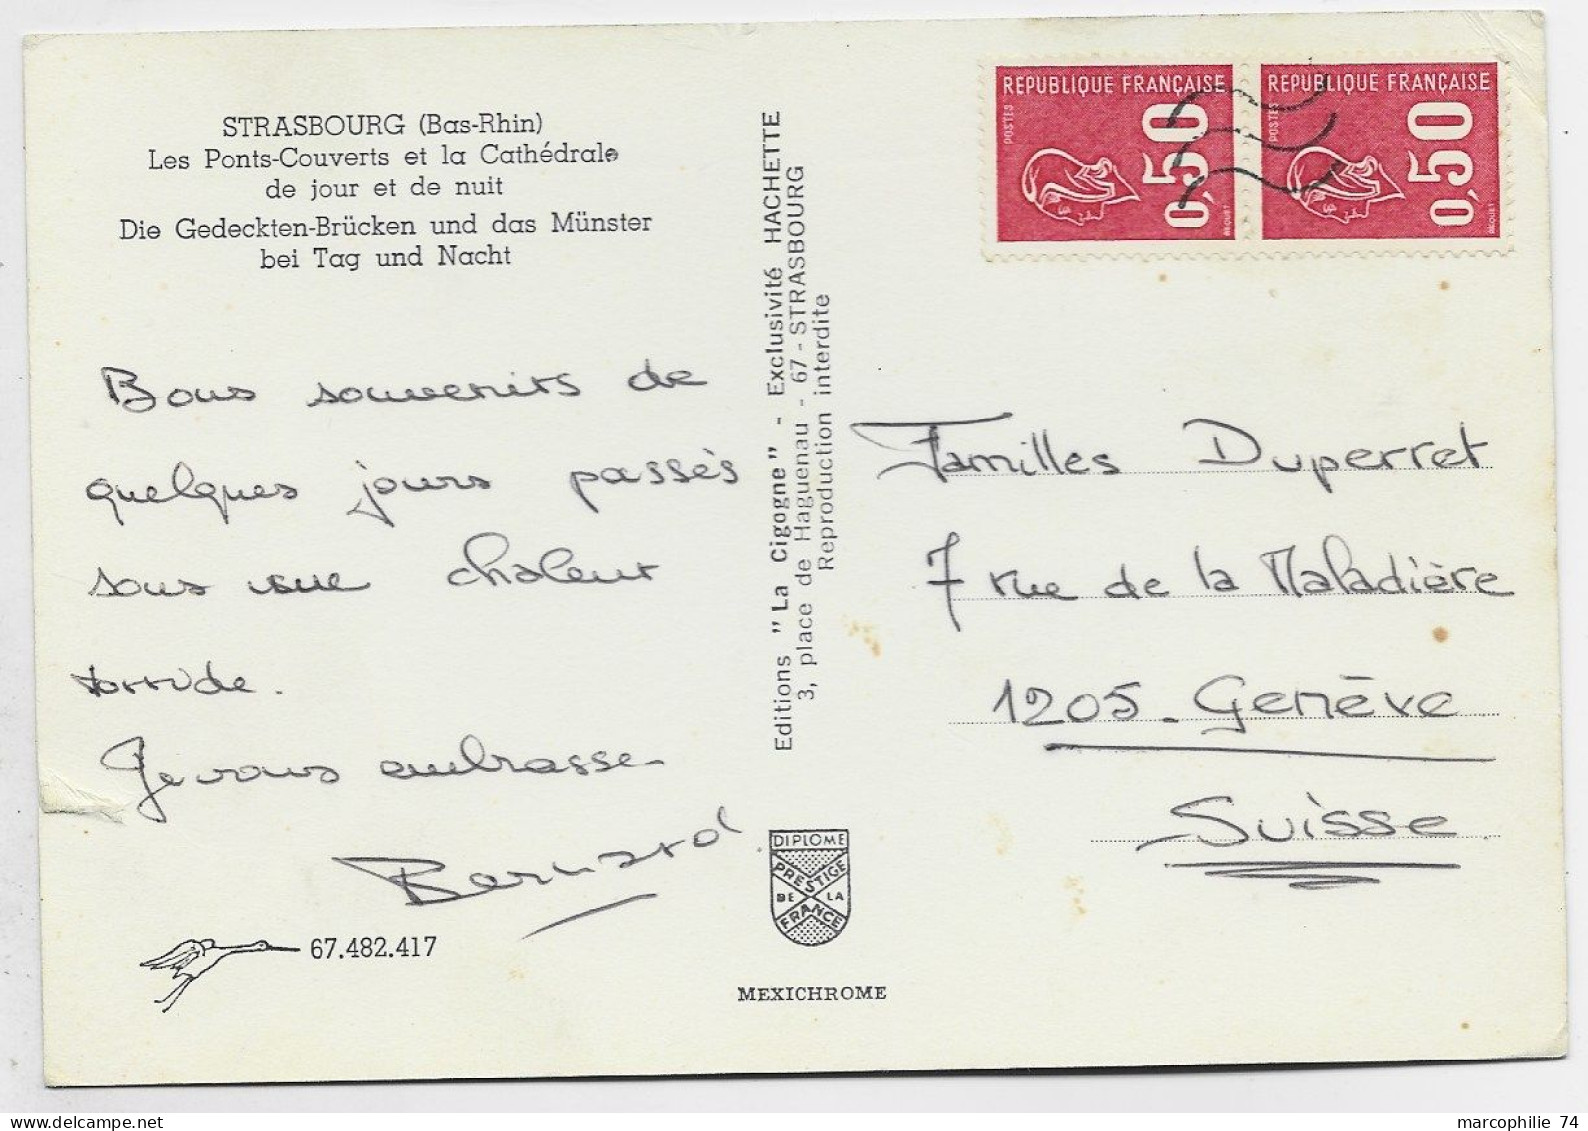 STRASBOURG (Bas-Rhin)
Les Ponts-Couverts et la Cathédrale
de jour et de nuit
Die Gedeckten-Brücken und das Münster
bei Tag und Nacht
Bons souvenirs de
quelques jours passés
sous une chaleur
torride.
Je vous embrasse
Bernard
67.482.417
Editions "La Cigogne" - Exclusivité HACHETTE
3, place de Haguenau - 67 - STRASBOURG
Reproduction interdite
DIPLOME
PRESTIGE
DE LA
FRANCE
MEXICHROME
REPUBLIQUE FRANÇAISE
POSTES
0,50
BEQUET
REPUBLIQUE FRANÇAISE
POSTES
0,50
BEQUET
Familles Duperret
7 rue de la Maladière
1205 - Genève
Suisse
marcophilie 74